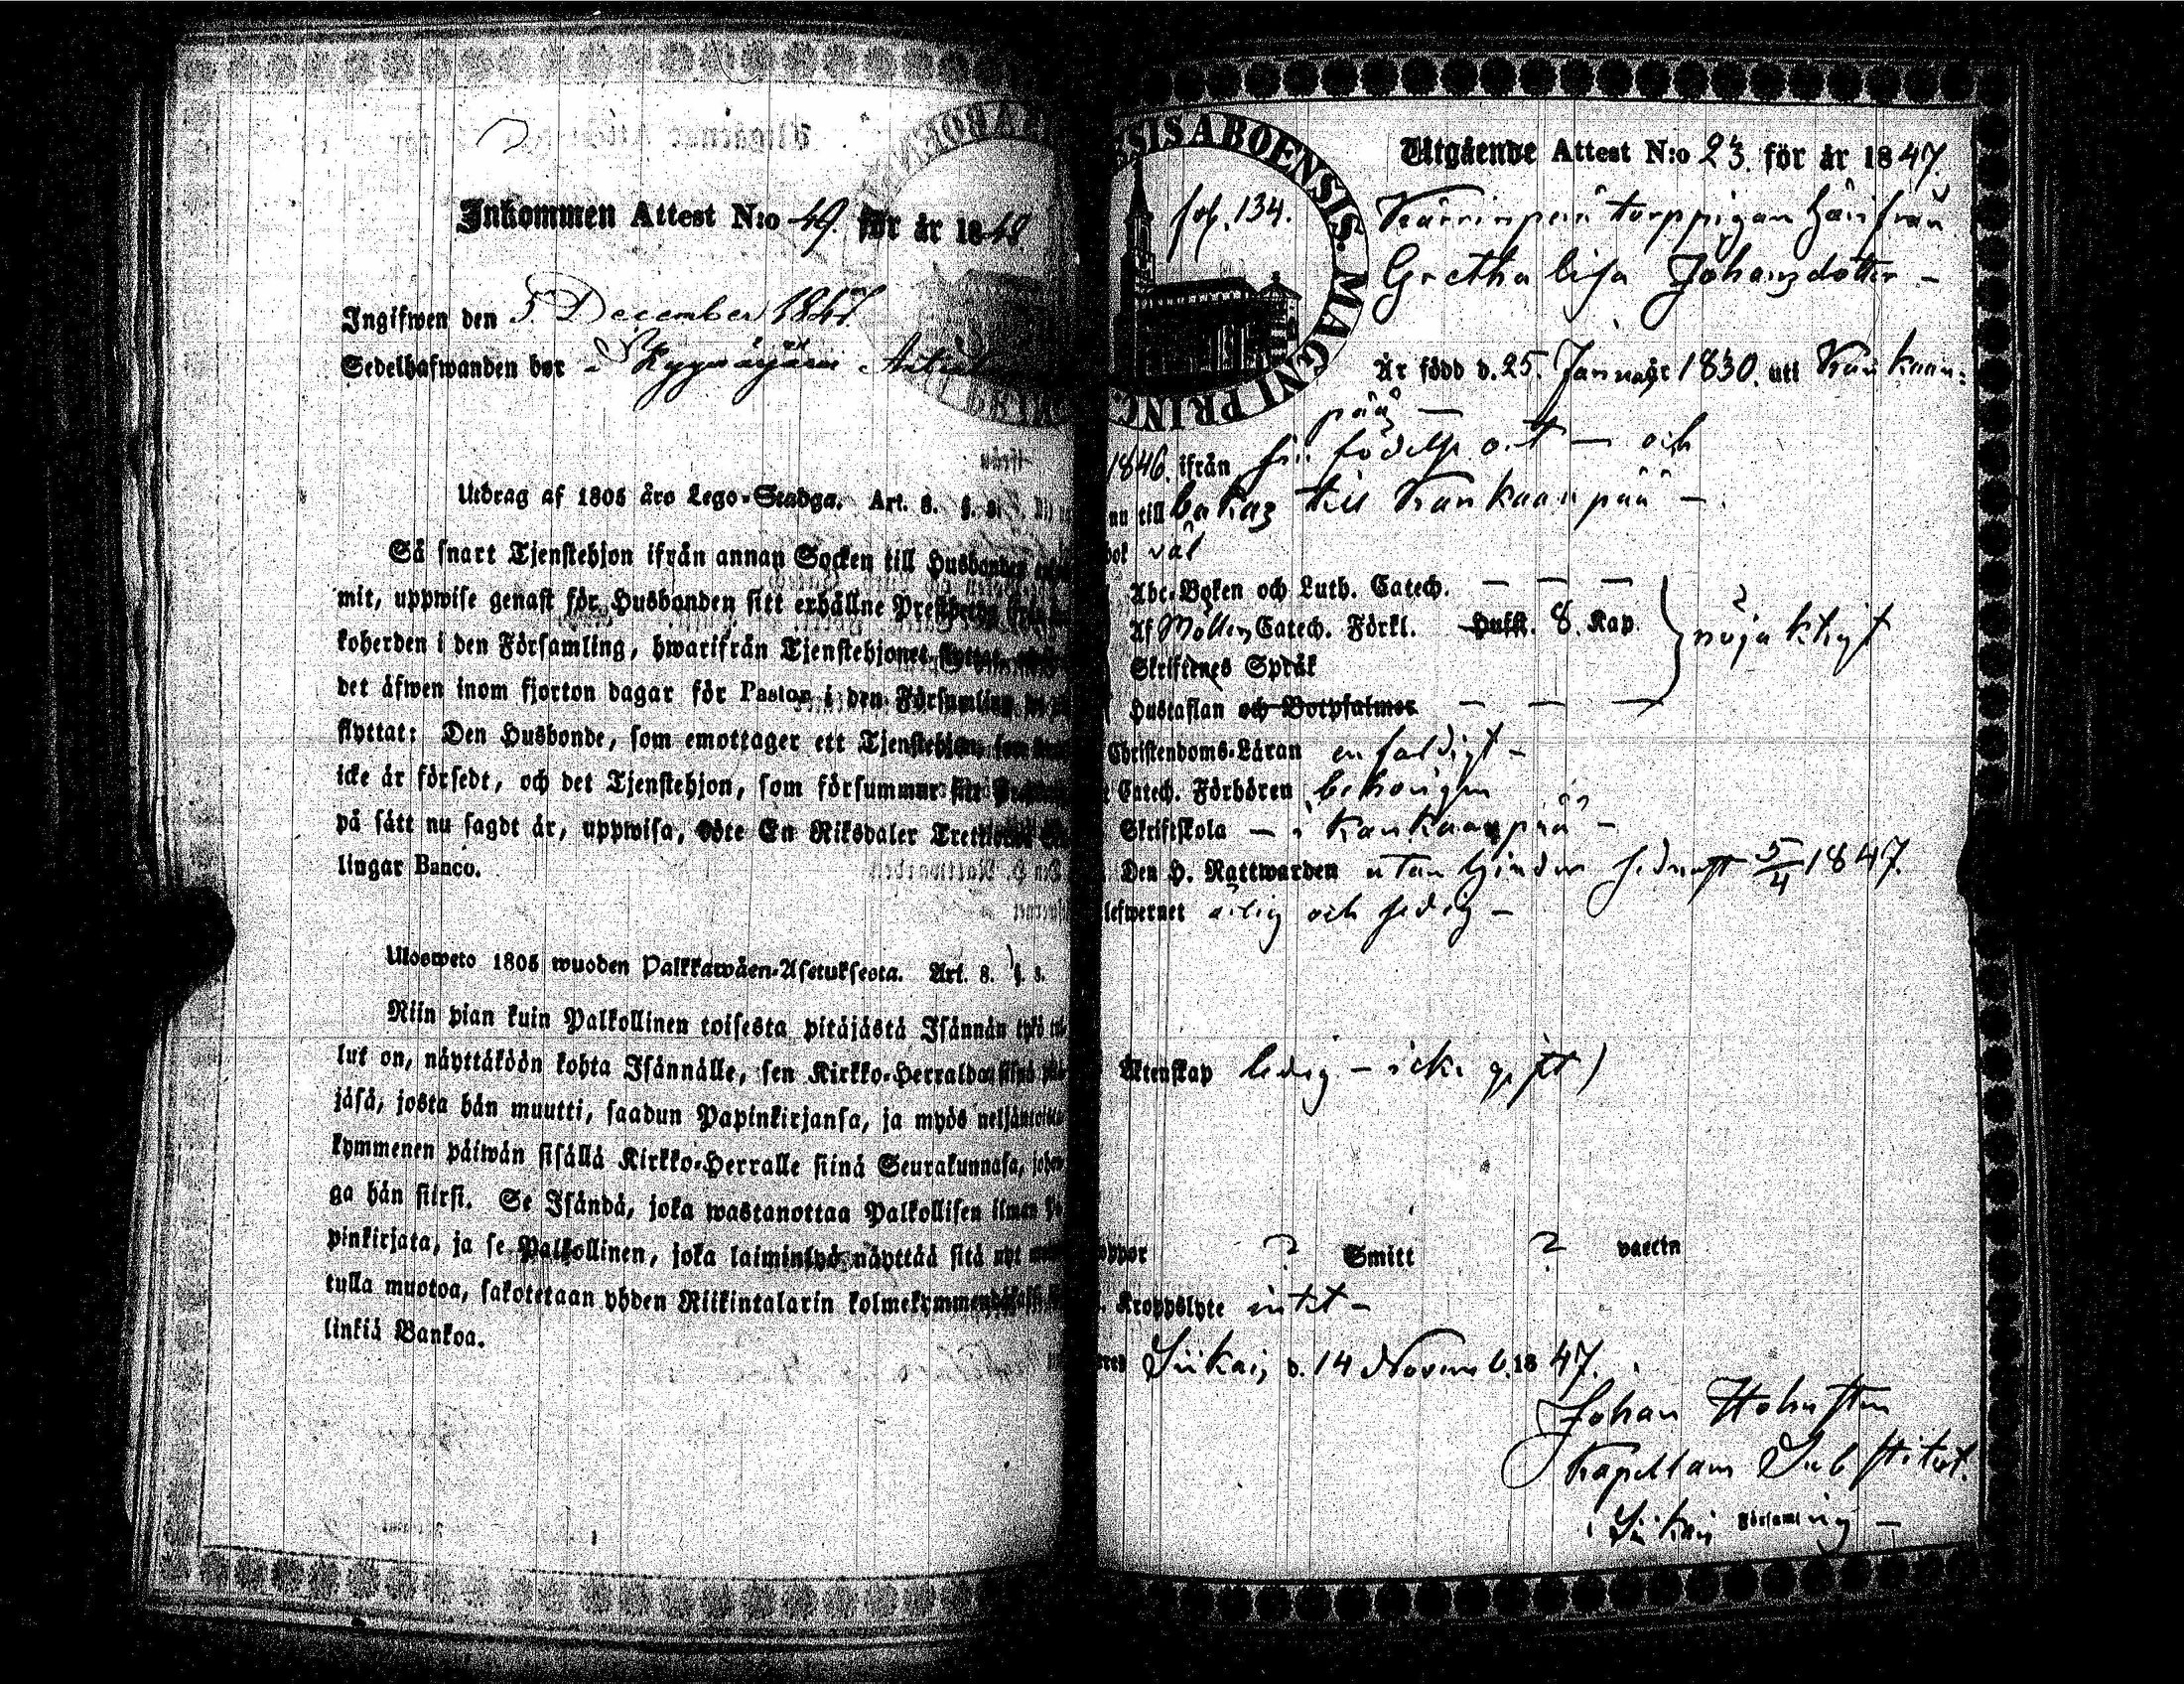 Inkommen Attest N:o 49. för år 1848
Ingifwen den 5 December 1847
Sedelhafwanden bor
Utdrag af 1805 års Lego-Stadga. Art. 8. §. 8.
Så snart Tjenstehjon ifrån annan Socken till Husbonden
mit, uppwise genast för Husbonden sitt erhållne
koherden i den Församling, hwarifrån Tjenstehjonet
det äfwen inom fjorton dagar för Pastor i den Församling
flyttat: Den Husbonde, som emottager ett Tjenstehjon
icke är försedt, och det Tjenstehjon, som försummar
på sätt nu sagdt är, uppwisa, böte En Riksdaler
lingar Banco.
Ulosweto 1805 wuoden Palkkawäen-Asetuksesta. Art. 8. §. 8.
Niin pian kuin Palkollinen toisesta pitäjästä Isännän tykö
lut on, näyttäköön kohta Isännälle, sen Kirkko-Herralda
jäsä, josta hän muutti, saadun Papinkirjansa, ja myös
kymmenen päiwän sisällä Kirkko-Herralle siinä Seurakunnasa,
ga hän siirsi. Se Isändä, joka wastanottaa Palkollisen ilman
pinkirjata, ja se Palkollinen, joka laiminlyö näyttää sitä nyt
tulla muotoa, sakotetaan yhden Riikintalarin
linkiä Bankoa.
SIS ABOENSIS. MAGNI PRINC
fol. 134.
Utgående Attest N:o 23. för år 1847.
Kärrinperi torppigan härifrån
Gretha Lisa Johansdotter –
Är född d. 25. Januari 1830. uti Kankaan-
pää –
1846. ifrån sin födelse ort – och
nu till bakas till Kankaanpää –.
bok väl
Abc-Boken och Luth. Catech. – – –
Af Möllers Catech. Förkl. 8. Kap. } nöjaktigt
Skriftenes Språk
Hustaflan och Botpsalmer – – –
Christendoms-Läran enfaldigt –
Catech. Förhören behörigen
Skriftskola – i Kankaanpää –
Den H. Nattwarden utan hinder sednast 5/4 1847.
lefwernet ärlig och sedig –
Äktenskap ledig – icke gift)
oppor ? Smitt ? vaccin
Kroppslyte intet –
Siikais d. 14 Novemb. 1847.
Johan Holmsten
Kapellans Substitut.
i Siikais Församling –